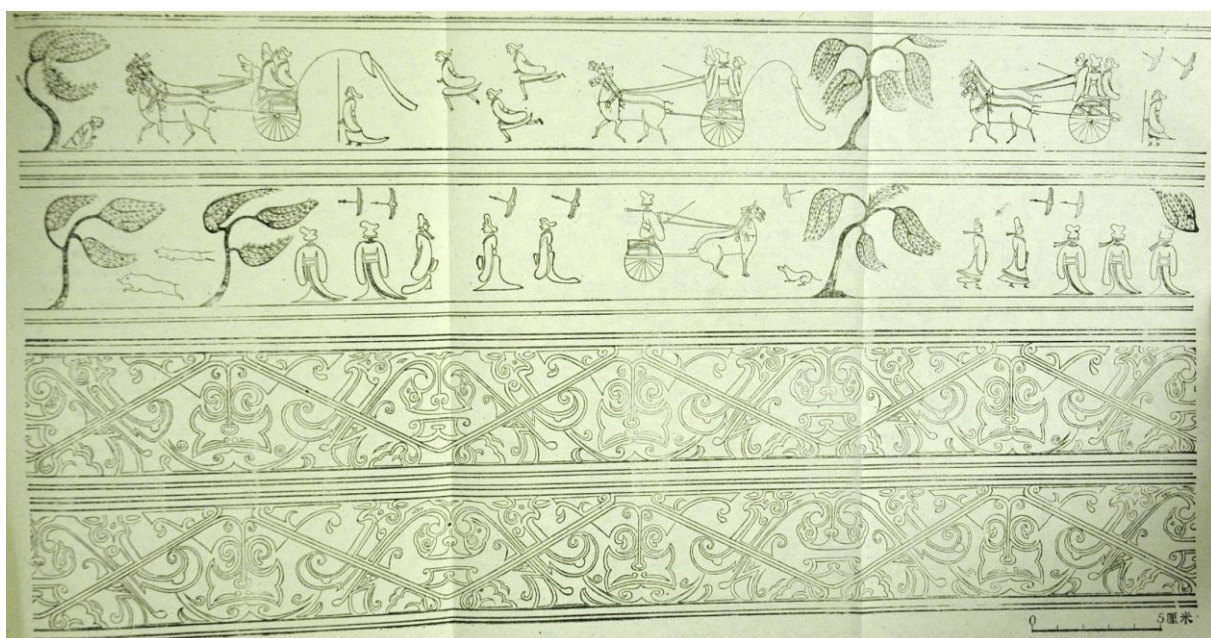 0 5厘米